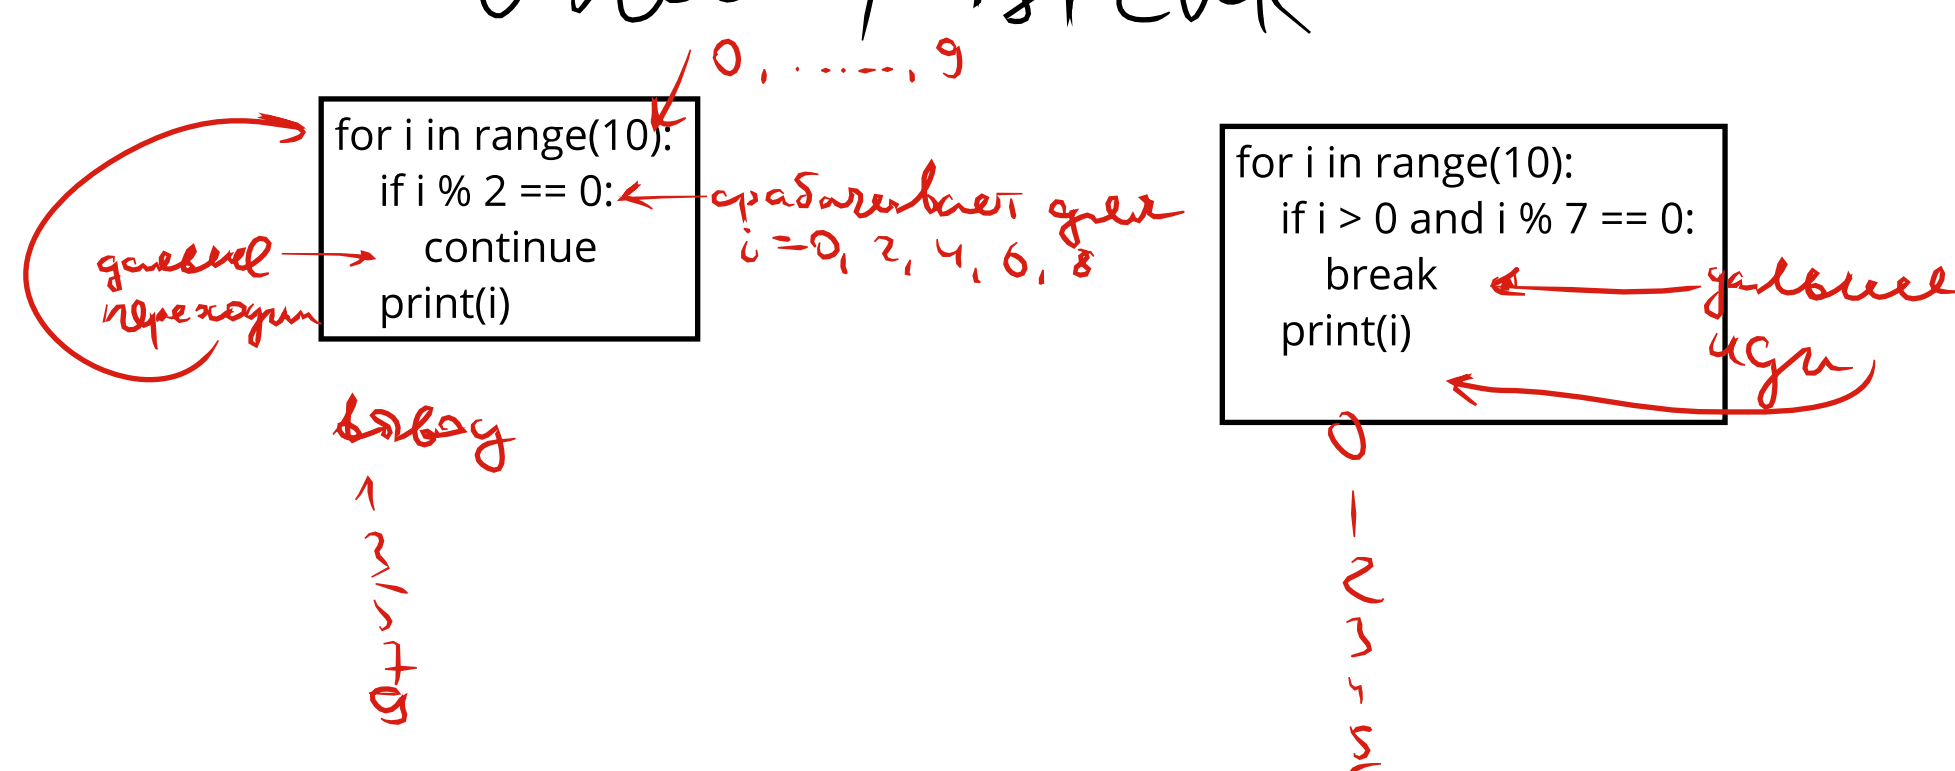 0, ......, 9
for i in range(10):
if i % 2 == 0:
continue
print(i)
срабатывает для
i = 0, 2, 4, 6, 8
дальше
переходим
вывод
1
3
5
7
9
for i in range(10):
if i > 0 and i % 7 == 0:
break
print(i)
дальше
иди
0
1
2
3
4
5